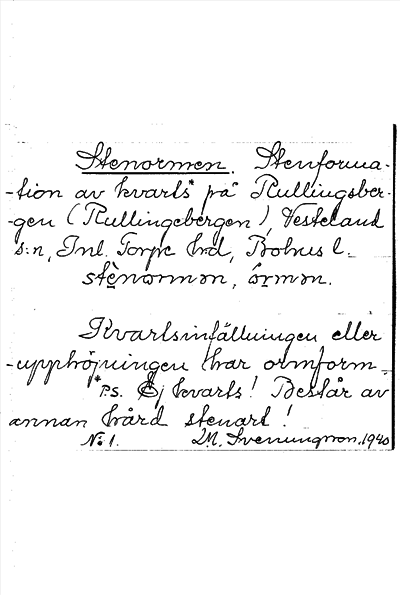 Stenormen. Stenforma-
-tion av kvarts* på Rullingsber-
-gen (Rullingebergen), Vesteland
s:n, Inl. Torpe hrd, Bohus l.
stènormən, òrmən.
Kvartsinfällningen eller
-upphöjningen har ormform.
*P.S. Ej kvarts! Består av
annan hård stenart!
No 1. M. Svenungsson. 1940